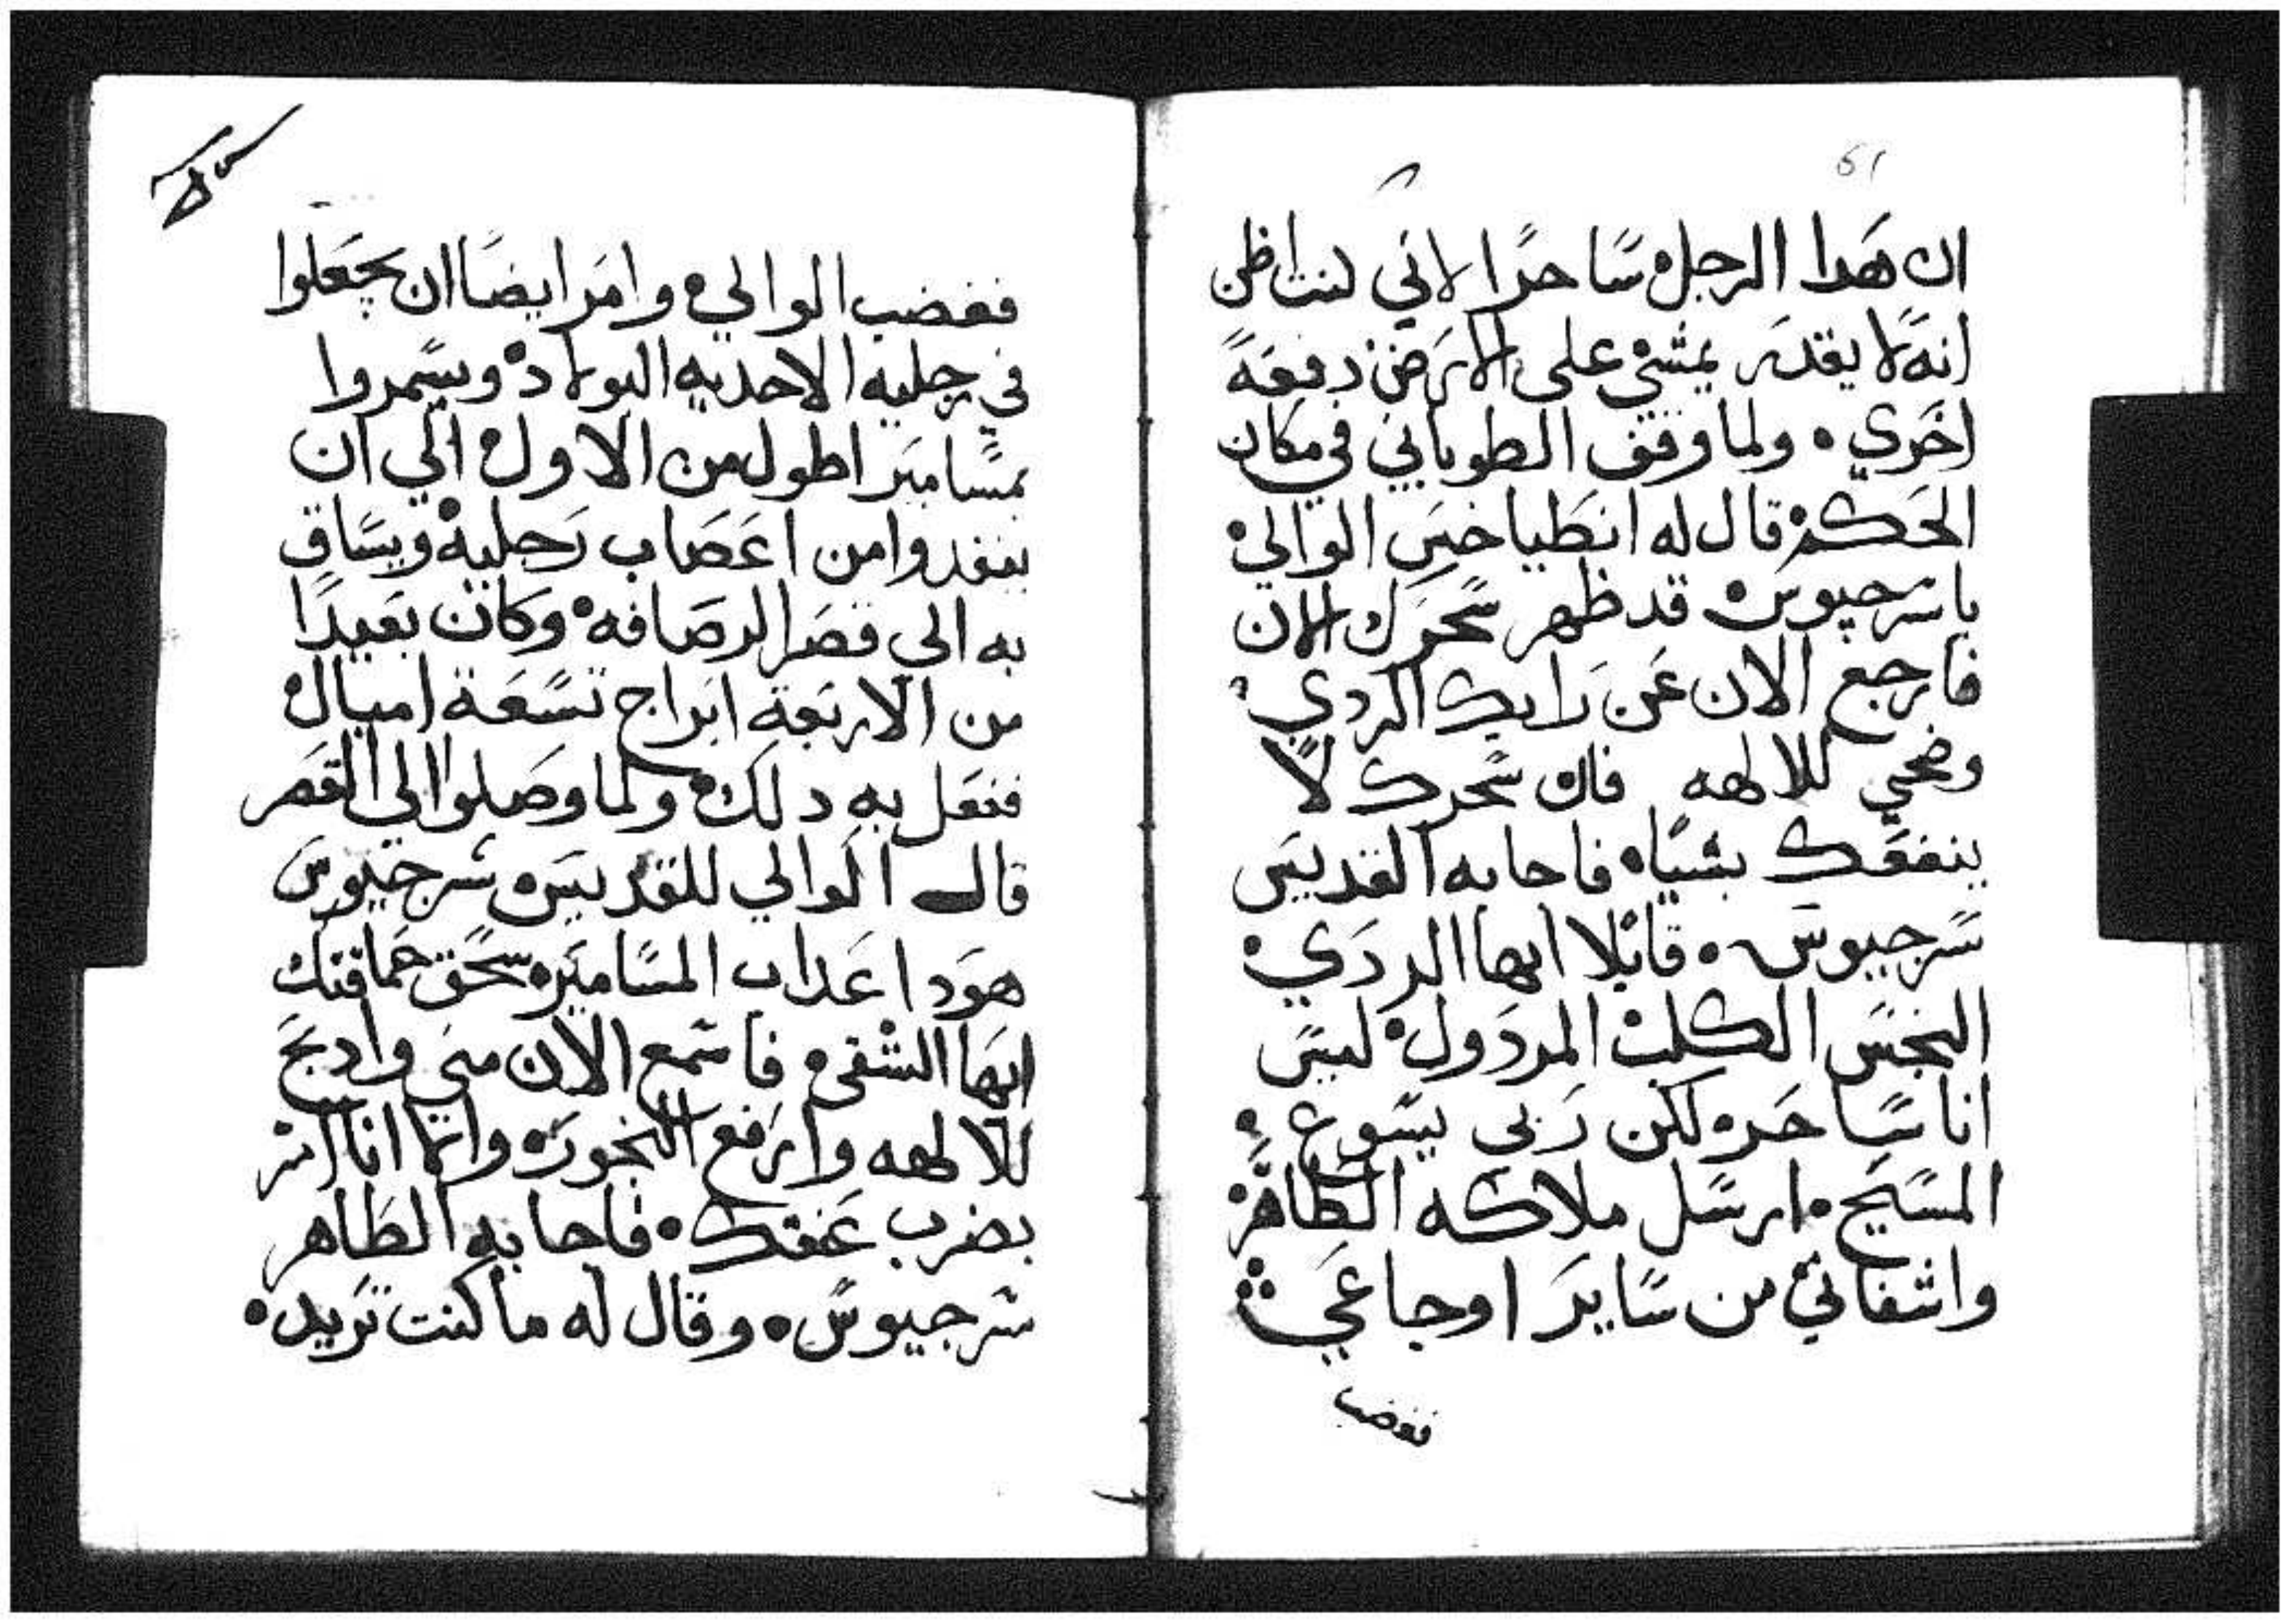 61
ان هدا الرجل ساحرا لاني كنت اظن
انه لا يقدر يمشي على الارض دفعة
اخري • ولما وقف الطوباني في مكان
الحكم قال له انطياخس الوالي •
يا سرجيوس • قد ظهر سحرك الان
فارجع الان عن رايك الردي •
وضحي للالهه فان سحرك لا
ينفعك بشيا • فاجابه القديس
سرجيوس • قايلا ايها الردي •
النجس الكلب المردول • ليس
انا ساحر • لكن ربي يسوع •
المسيح • ارسل ملاكه الطاهر •
واشفاني من ساير اوجاعي ⁘
فغضب
فغضب الوالي • وامر ايضا ان يجعلوا
في رجليه الاحديه البولاد • ويسمروا
بمسامير اطول من الاول • الي ان
ينفدوا من اعصاب رجليه • ويساق
به الي قصر الرصافه • وكان بعيدا
من الاربعة ابراج تسعة اميال •
ففعل به دلك • ولما وصلوا الي القصر
قال الوالي للقديس • سرجيوس
هودا عداب المسامير • سحق حماقتك
ايها الشقي • فاسمع الان مني وادبح
للالهه وارفع البخور • وانما انا امر
بضرب عنقك • فاجابه الطاهر
سرجيوس • وقال له ما كنت تريد •